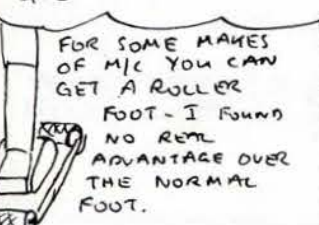 FOR SOME MAKES
OF M/C YOU CAN
GET A ROLLER
FOOT - I FOUND
NO REAL
ADVANTAGE OVER
THE NORMAL
FOOT.